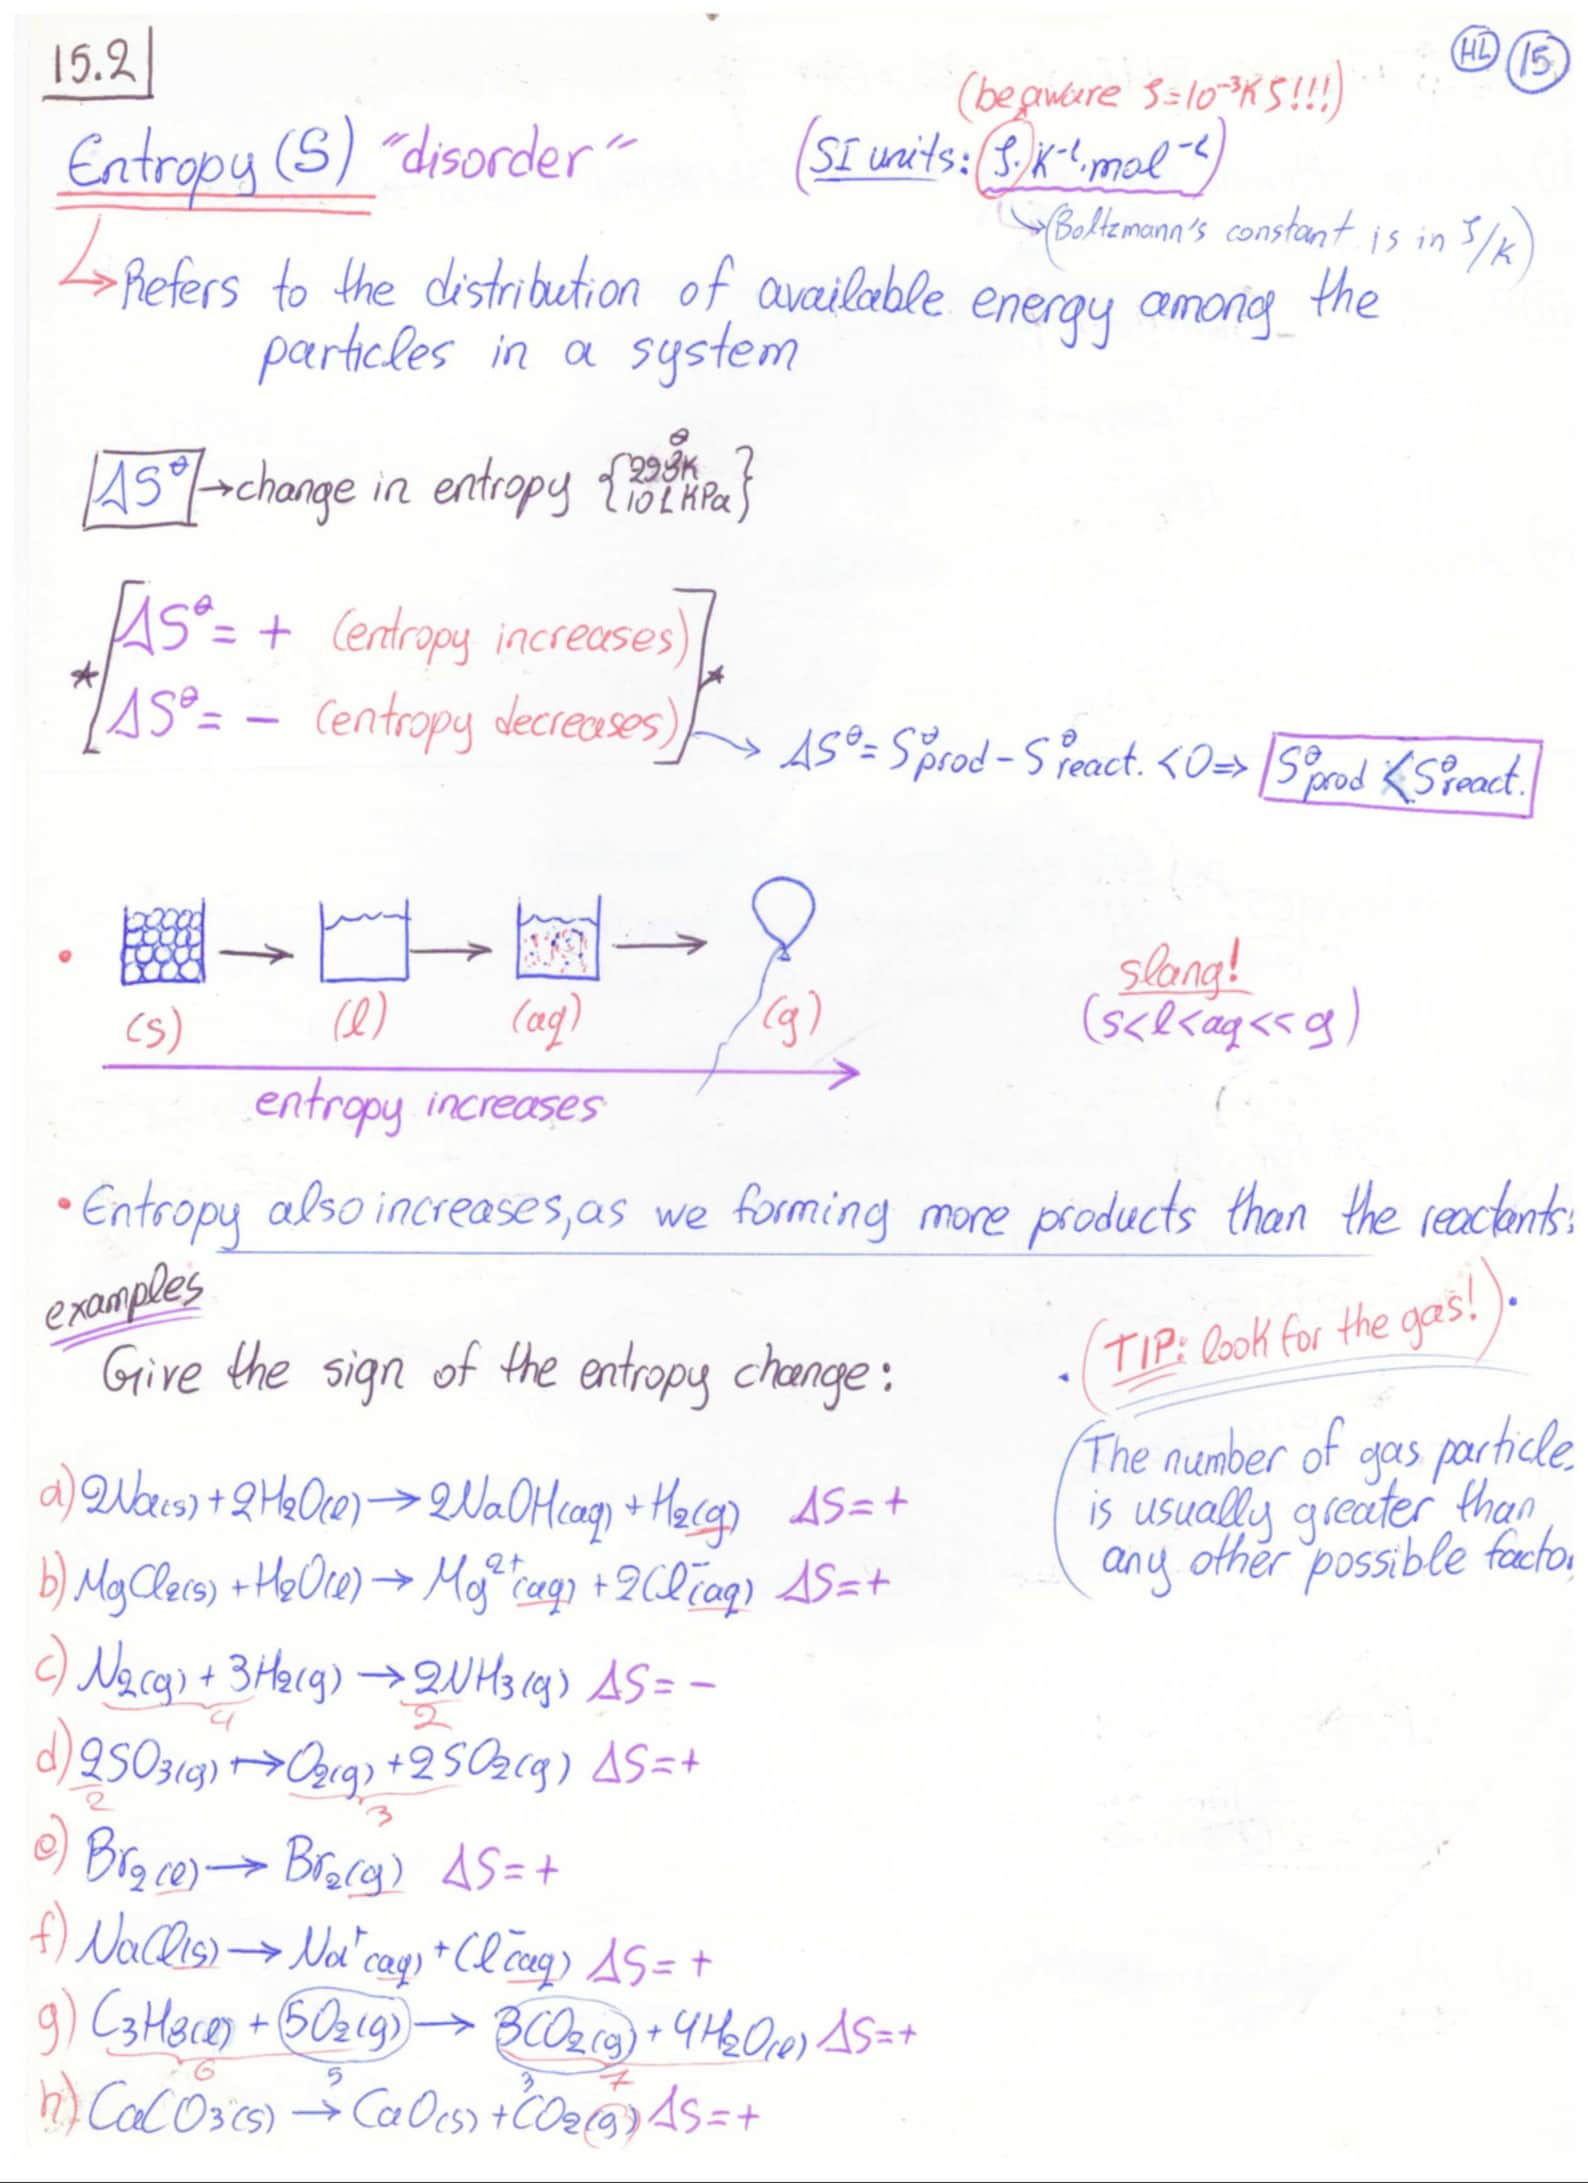 15.2
HL 15
(be aware J=10⁻³KJ!!!)
Entropy (S) "disorder" (SI units: J·K⁻¹·mol⁻¹)
(Boltzmann's constant is in J/K)
Refers to the distribution of available energy among the
particles in a system
ΔS^θ → change in entropy { θ 298K 101 KPa }
ΔS^θ = + (entropy increases)
* *
ΔS^θ = - (entropy decreases)
→ ΔS^θ = S^θprod - S^θreact. < 0 ⇒ S^θprod < S^θreact.
(s) → (l) → (aq) → (g)
slang!
(s<l<aq<<g)
entropy increases
• Entropy also increases, as we forming more products than the reactants:
examples
• (TIP: look for the gas!) •
Give the sign of the entropy change:
(The number of gas particle.
is usually greater than
any other possible facto.
a) 2Na(s) + 2H₂O(l) → 2NaOH(aq) + H₂(g) ΔS = +
b) MgCl₂(s) + H₂O(l) → Mg²⁺(aq) + 2Cl⁻(aq) ΔS = +
c) N₂(g) + 3H₂(g) → 2NH₃(g) ΔS = -
4 2
d) 2SO₃(g) → O₂(g) + 2SO₂(g) ΔS = +
2 3
e) Br₂(l) → Br₂(g) ΔS = +
f) NaCl(s) → Na⁺(aq) + Cl⁻(aq) ΔS = +
g) C₃H₈(l) + 5O₂(g) → 3CO₂(g) + 4H₂O(l) ΔS = +
6 5 3 7
h) CaCO₃(s) → CaO(s) + CO₂(g) ΔS = +